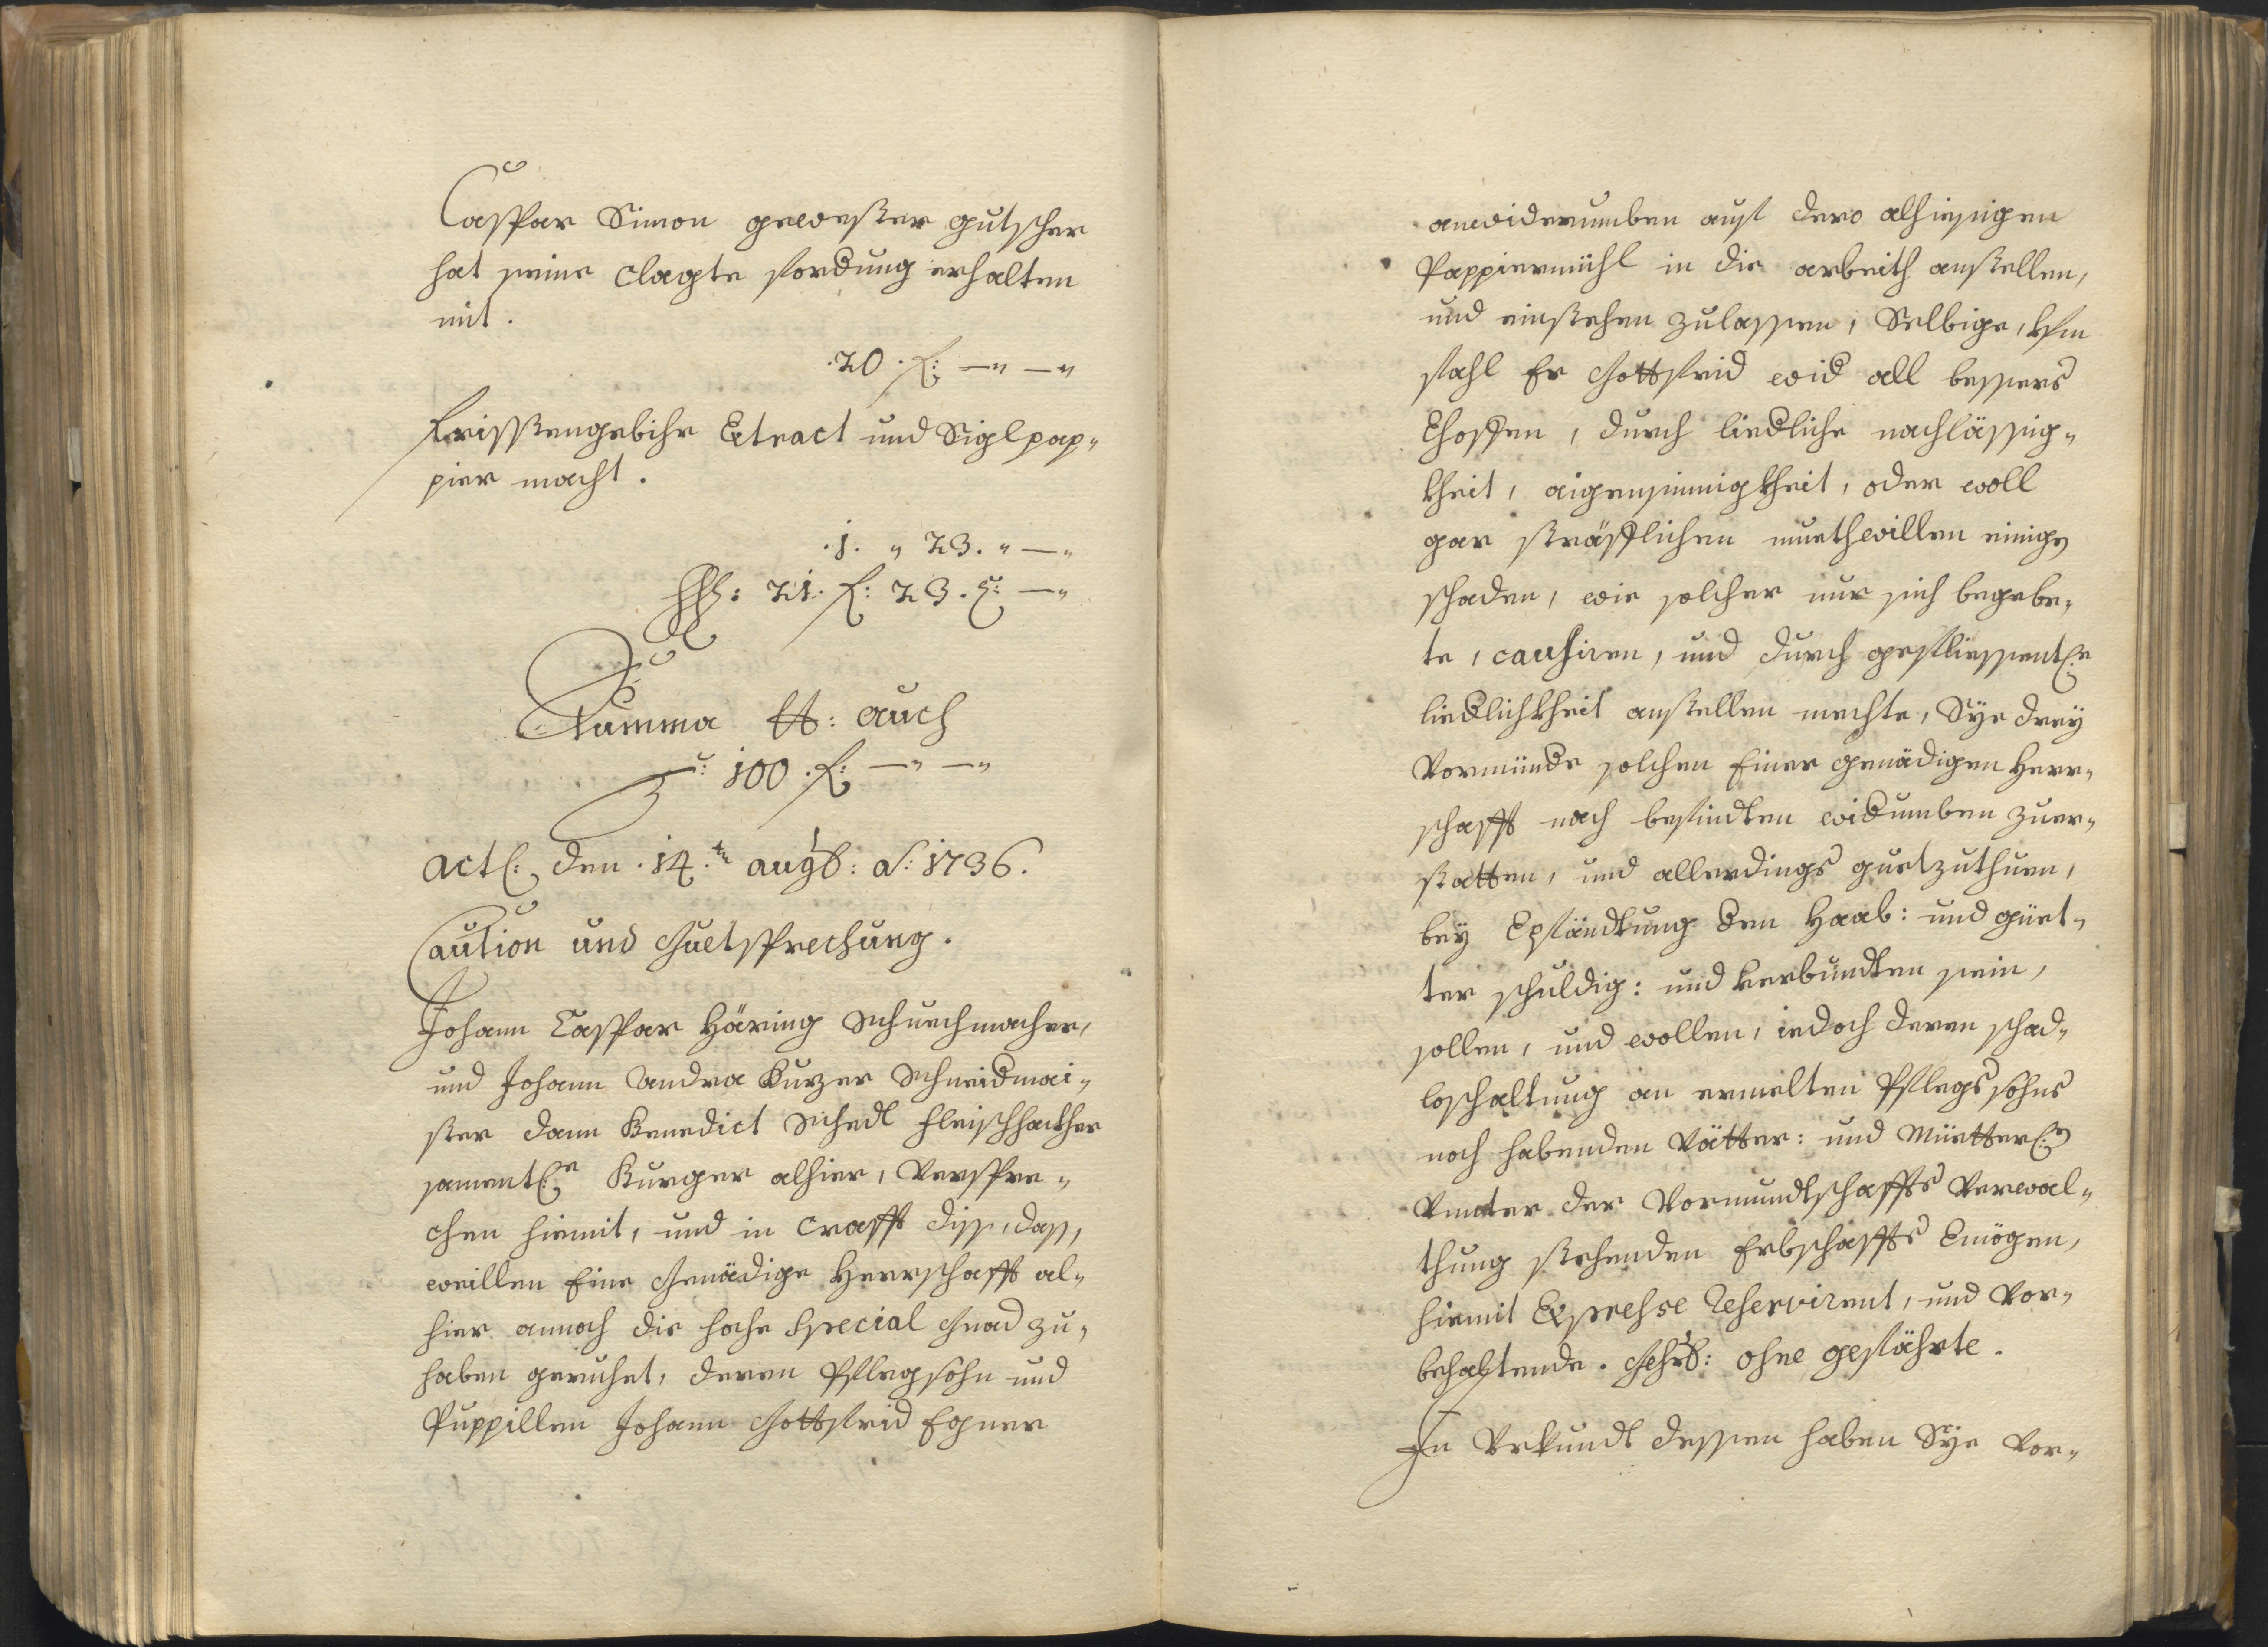 Caspar Simon gewester gutscher
hat seine clagte fordung erhalten
mit.
.20. f: —" —"
Frisstengebihr Extract und Siglpap"
pier macht.
.1. " 23. " —"
21. f: 23. x: —"
Summa tt: auch
100. f: —" —"
Act: den .14.tn augs: A: 1736.
Caution und Guetsprechung.
Johann Caspar Häring Schuechmacher,
und Johann Andrea Kurzer Schneidmai"
ster dann Benedict Schedl Fleischhackher
sament: Burger alhier, Verspre"
chen hiemit, und in Crafft diss, dass,
weillen Eine Genädige Herrschafft al"
hier annoch die hoche Special Gnad zu"
haben geruhet, deren Pflegsohn und
Puppillen Johann Gottfrid Egner
anwiderumben auf dero alhiesigen
Pappiermühl in die arbeith anstellen,
und einstehen zulassen, Selbige,
fahl Er Gottfrid wid all bessers
Hoffen, durch liedliche nachlässig"
kheit, aigensinnigkheit, oder woll
gar sträfflichen muethwillen einige
schaden, wie solcher nur sich begebe"
te, causiren, und durch gefliessent:e
liedlichkheit anstellen mechte, Sye drey
Vormünde solchen Einer genädigen Herr"
schafft nach befindten widumben zuer"
statten, und allerdings guetzuthuen,
bey Epfändtung den Haab: und güet"
ter schuldig: und verbundten sein,
sollen, und wollen, iedoch deren schad"
loshaltung an ermelten Pflegssohns
noch habenden Vätter: und Müetter:
Vnnter der Vormundtschaffts Verwal"
thung stehenden Erbschaffts Emögen,
hiemit Expresse Reservirent, und Vor"
behaltende. ohne gefährte.
In Vrkundt dessen haben Sye Vor"